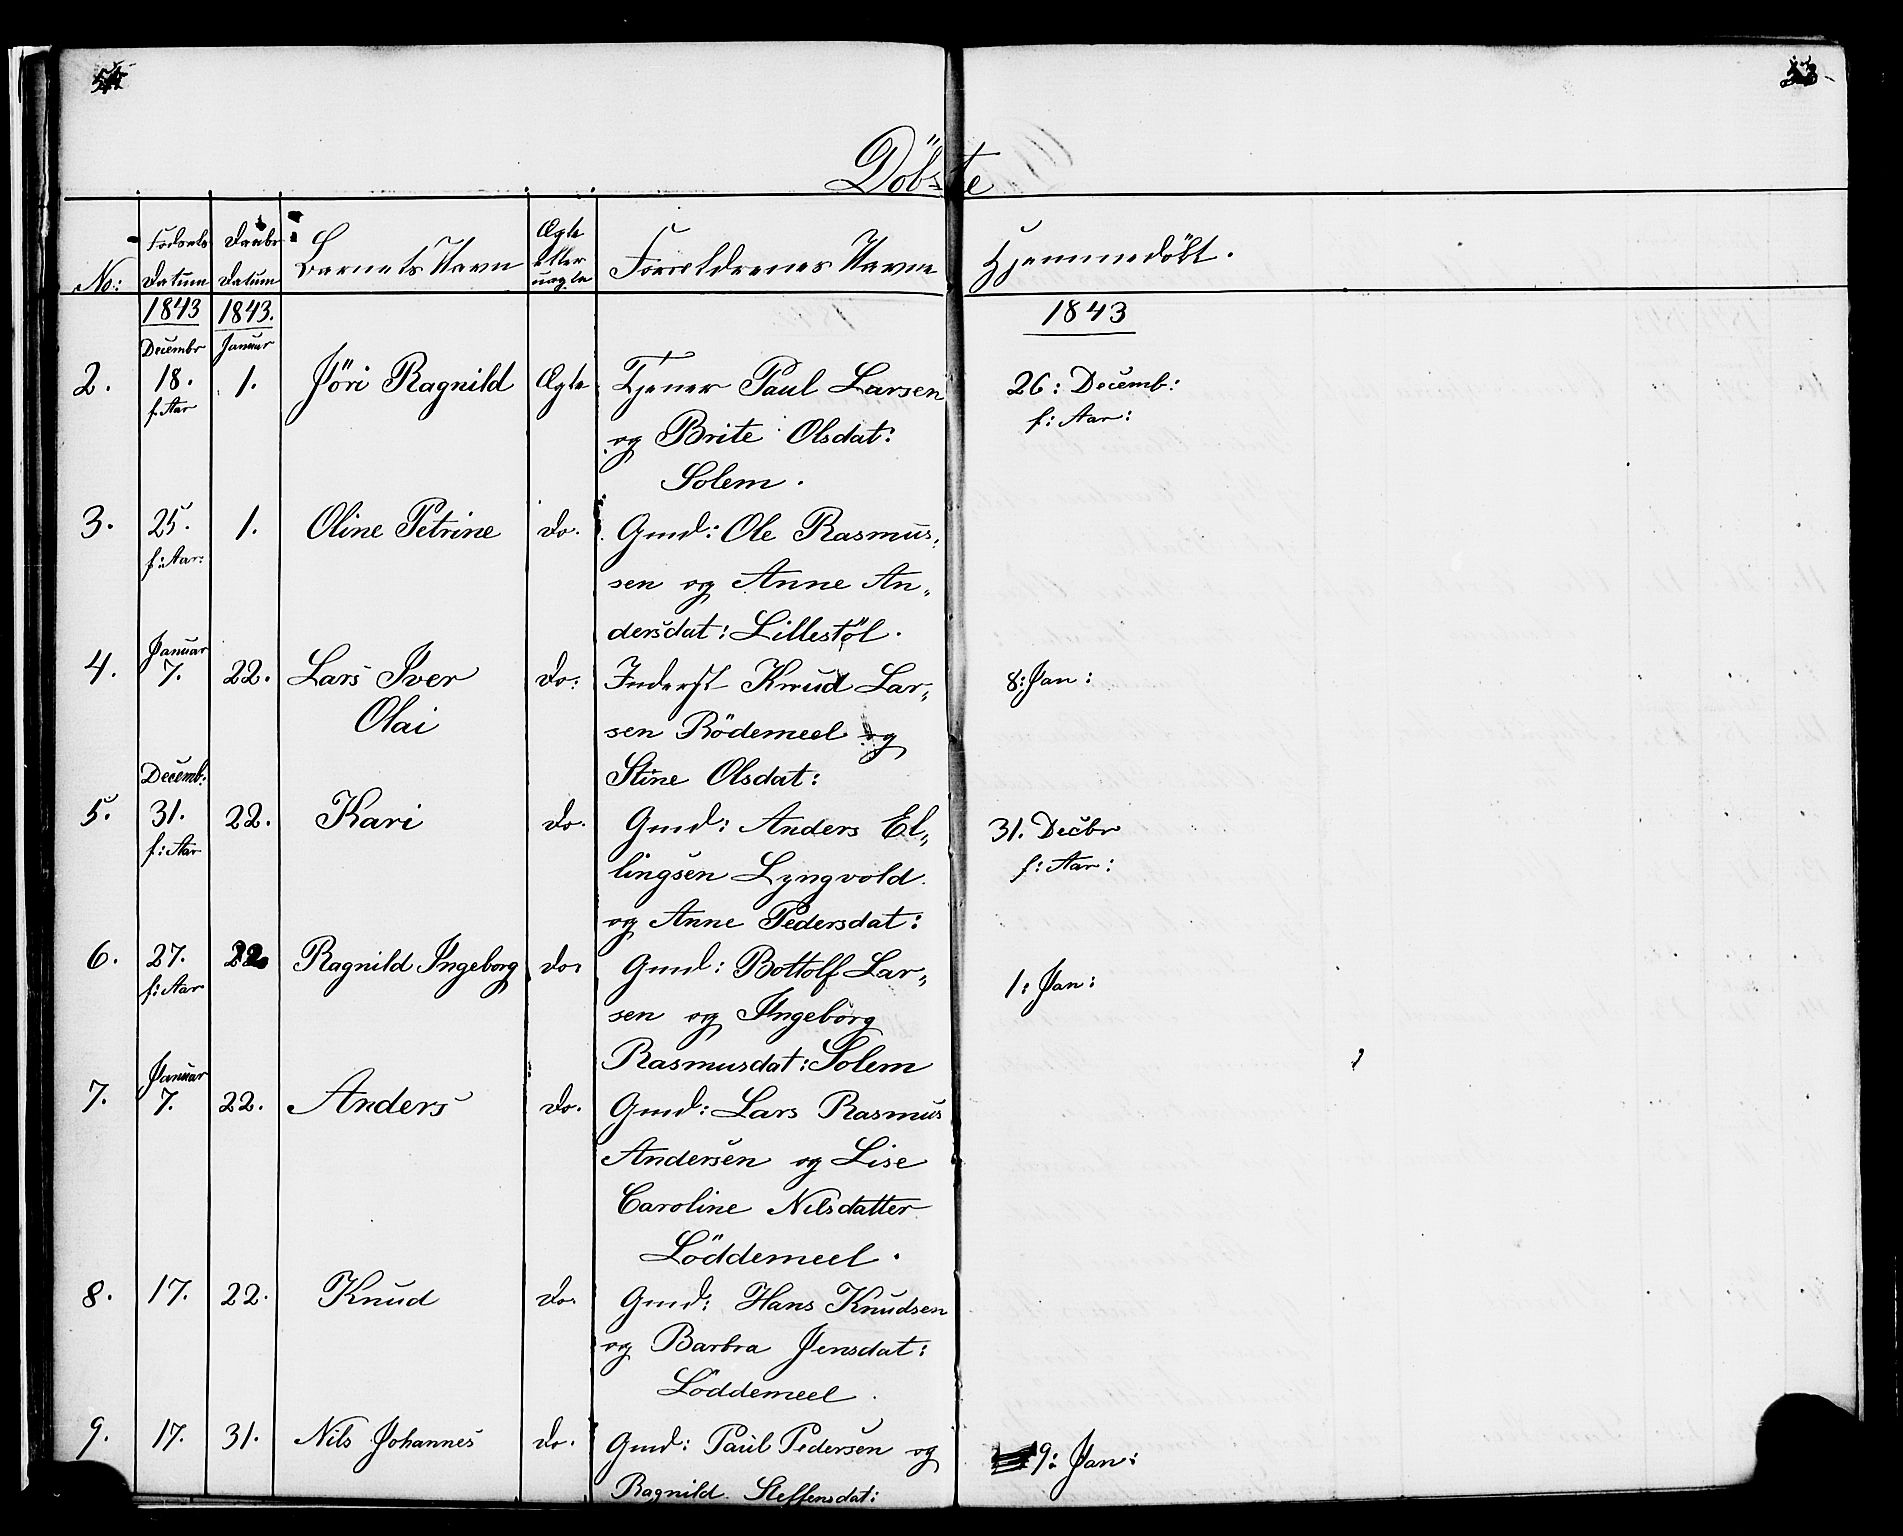 Döbte
No: Fødsels Datum Daabs Datum Barnets Navn Ægte eller uægte Forældrenes Navne Hjemmedöbt.
1843 1843. 1843
Decembr Januar
2. 18. 1. Jöri Ragnild Ægte Tjener Paul Larsen 26: Decemb:
f. Aar og Brite Olsdat: f: Aar:
Solem.
3. 25. 1. Oline Petrine do. Gmd: Ole Rasmus,
f: Aar: sen og Anne An„
dersdat: Lillestöl.
Januar
4. 7. 22. Lars Iver do: Inderst Knud Lar„ 8: Jan:
Olai sen Rödemeel og
Decemb. Stine Olsdat:
5. 31. 22. Kari do. Gmd: Anders El„ 31. Decbr
f: Aar lingsen Lyngvold f: Aar:
og Anne Pedersdat:
6. 27. 22. Ragnild Ingeborg do. Gmd: Bottolf Lar„ 1: Jan:
f: Aar sen og Ingeborg
Rasmusdat: Solem
Januar
7. 7. 22. Anders do. Gmd: Lars Rasmus
Andersen og Lise
Caroline Nilsdatter
Löddemeel.
8. 17. 22. Knud do. Gmd: Hans Knudsen
og Barbra Jensdat:
Löddemeel.
9. 17. 31. Nils Johannes do. Gmd: Paul Pedersen og 9: Jan:
Ragnild Steffensdat: